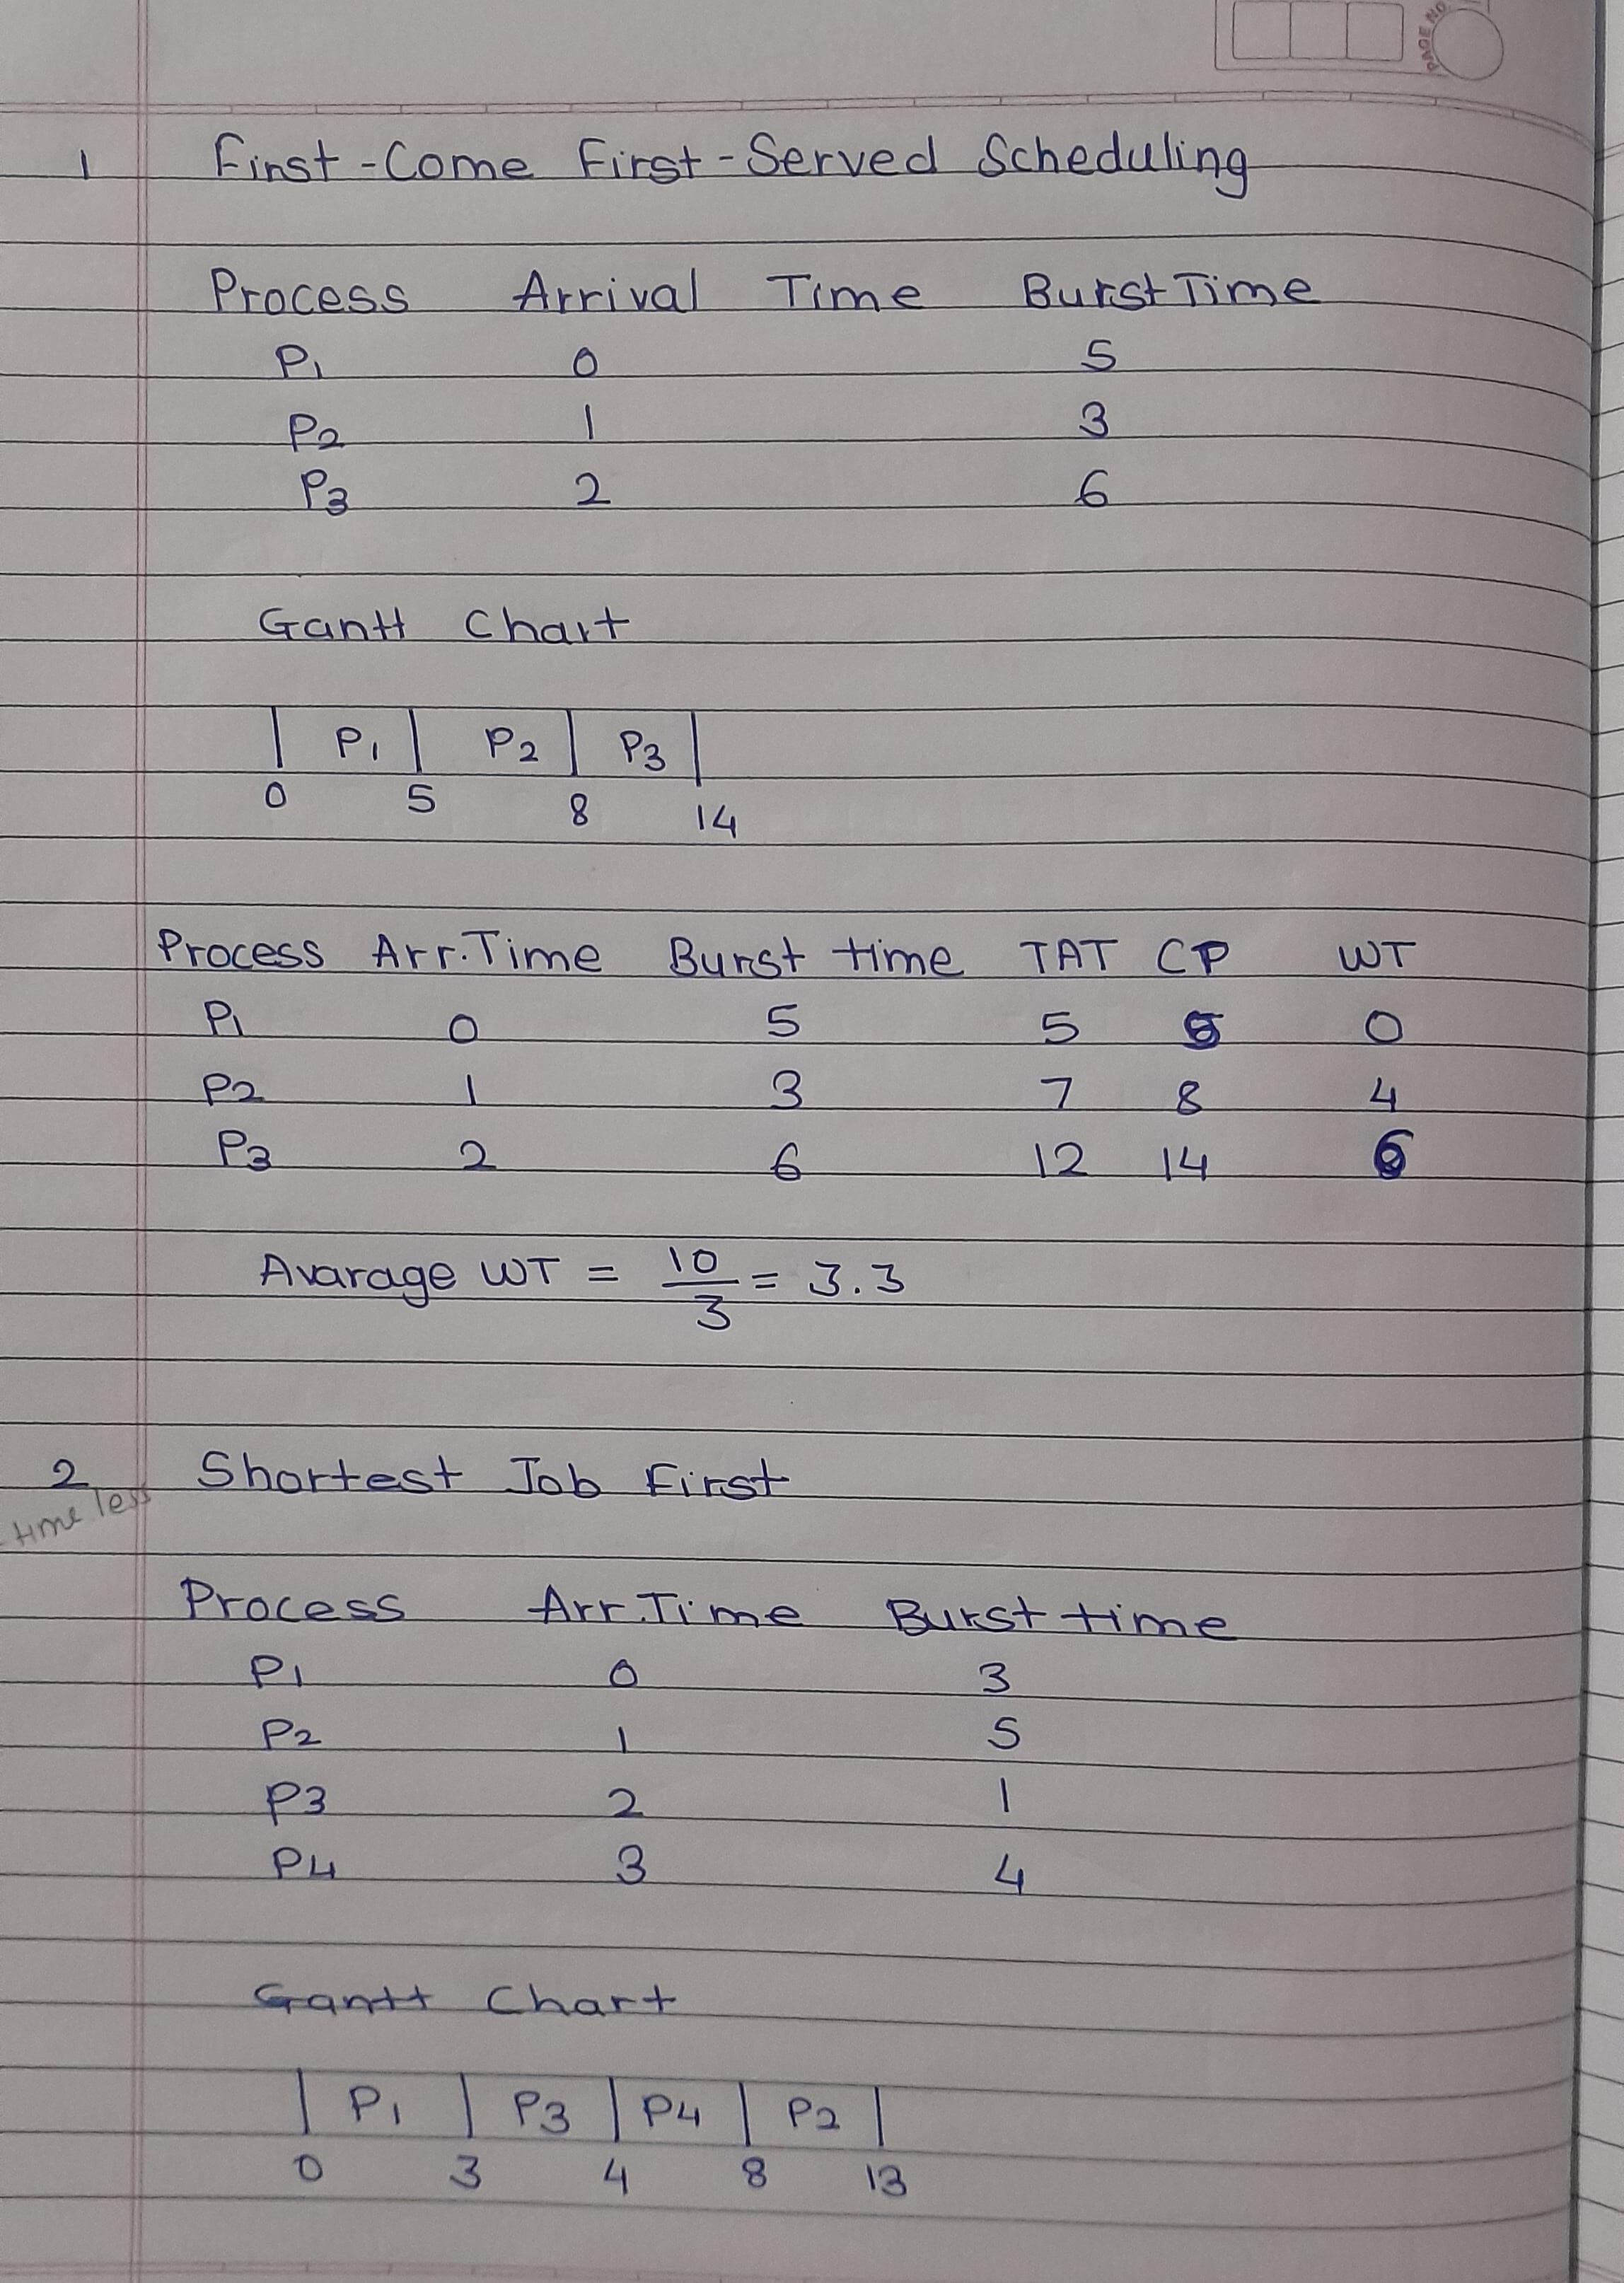 PAGE NO
1 First-Come First-Served Scheduling
Process Arrival Time Burst Time
P1 0 5
P2 1 3
P3 2 6
Gantt Chart
P1 P2 P3
0 5 8 14
Process Arr. Time Burst time TAT CP WT
P1 0 5 5 5 0
P2 1 3 7 8 4
P3 2 6 12 14 6
Avarage WT = 10/3 = 3.3
2 Shortest Job First
time less
Process Arr. Time Burst time
P1 0 3
P2 1 5
P3 2 1
P4 3 4
Gantt Chart
P1 P3 P4 P2
0 3 4 8 13